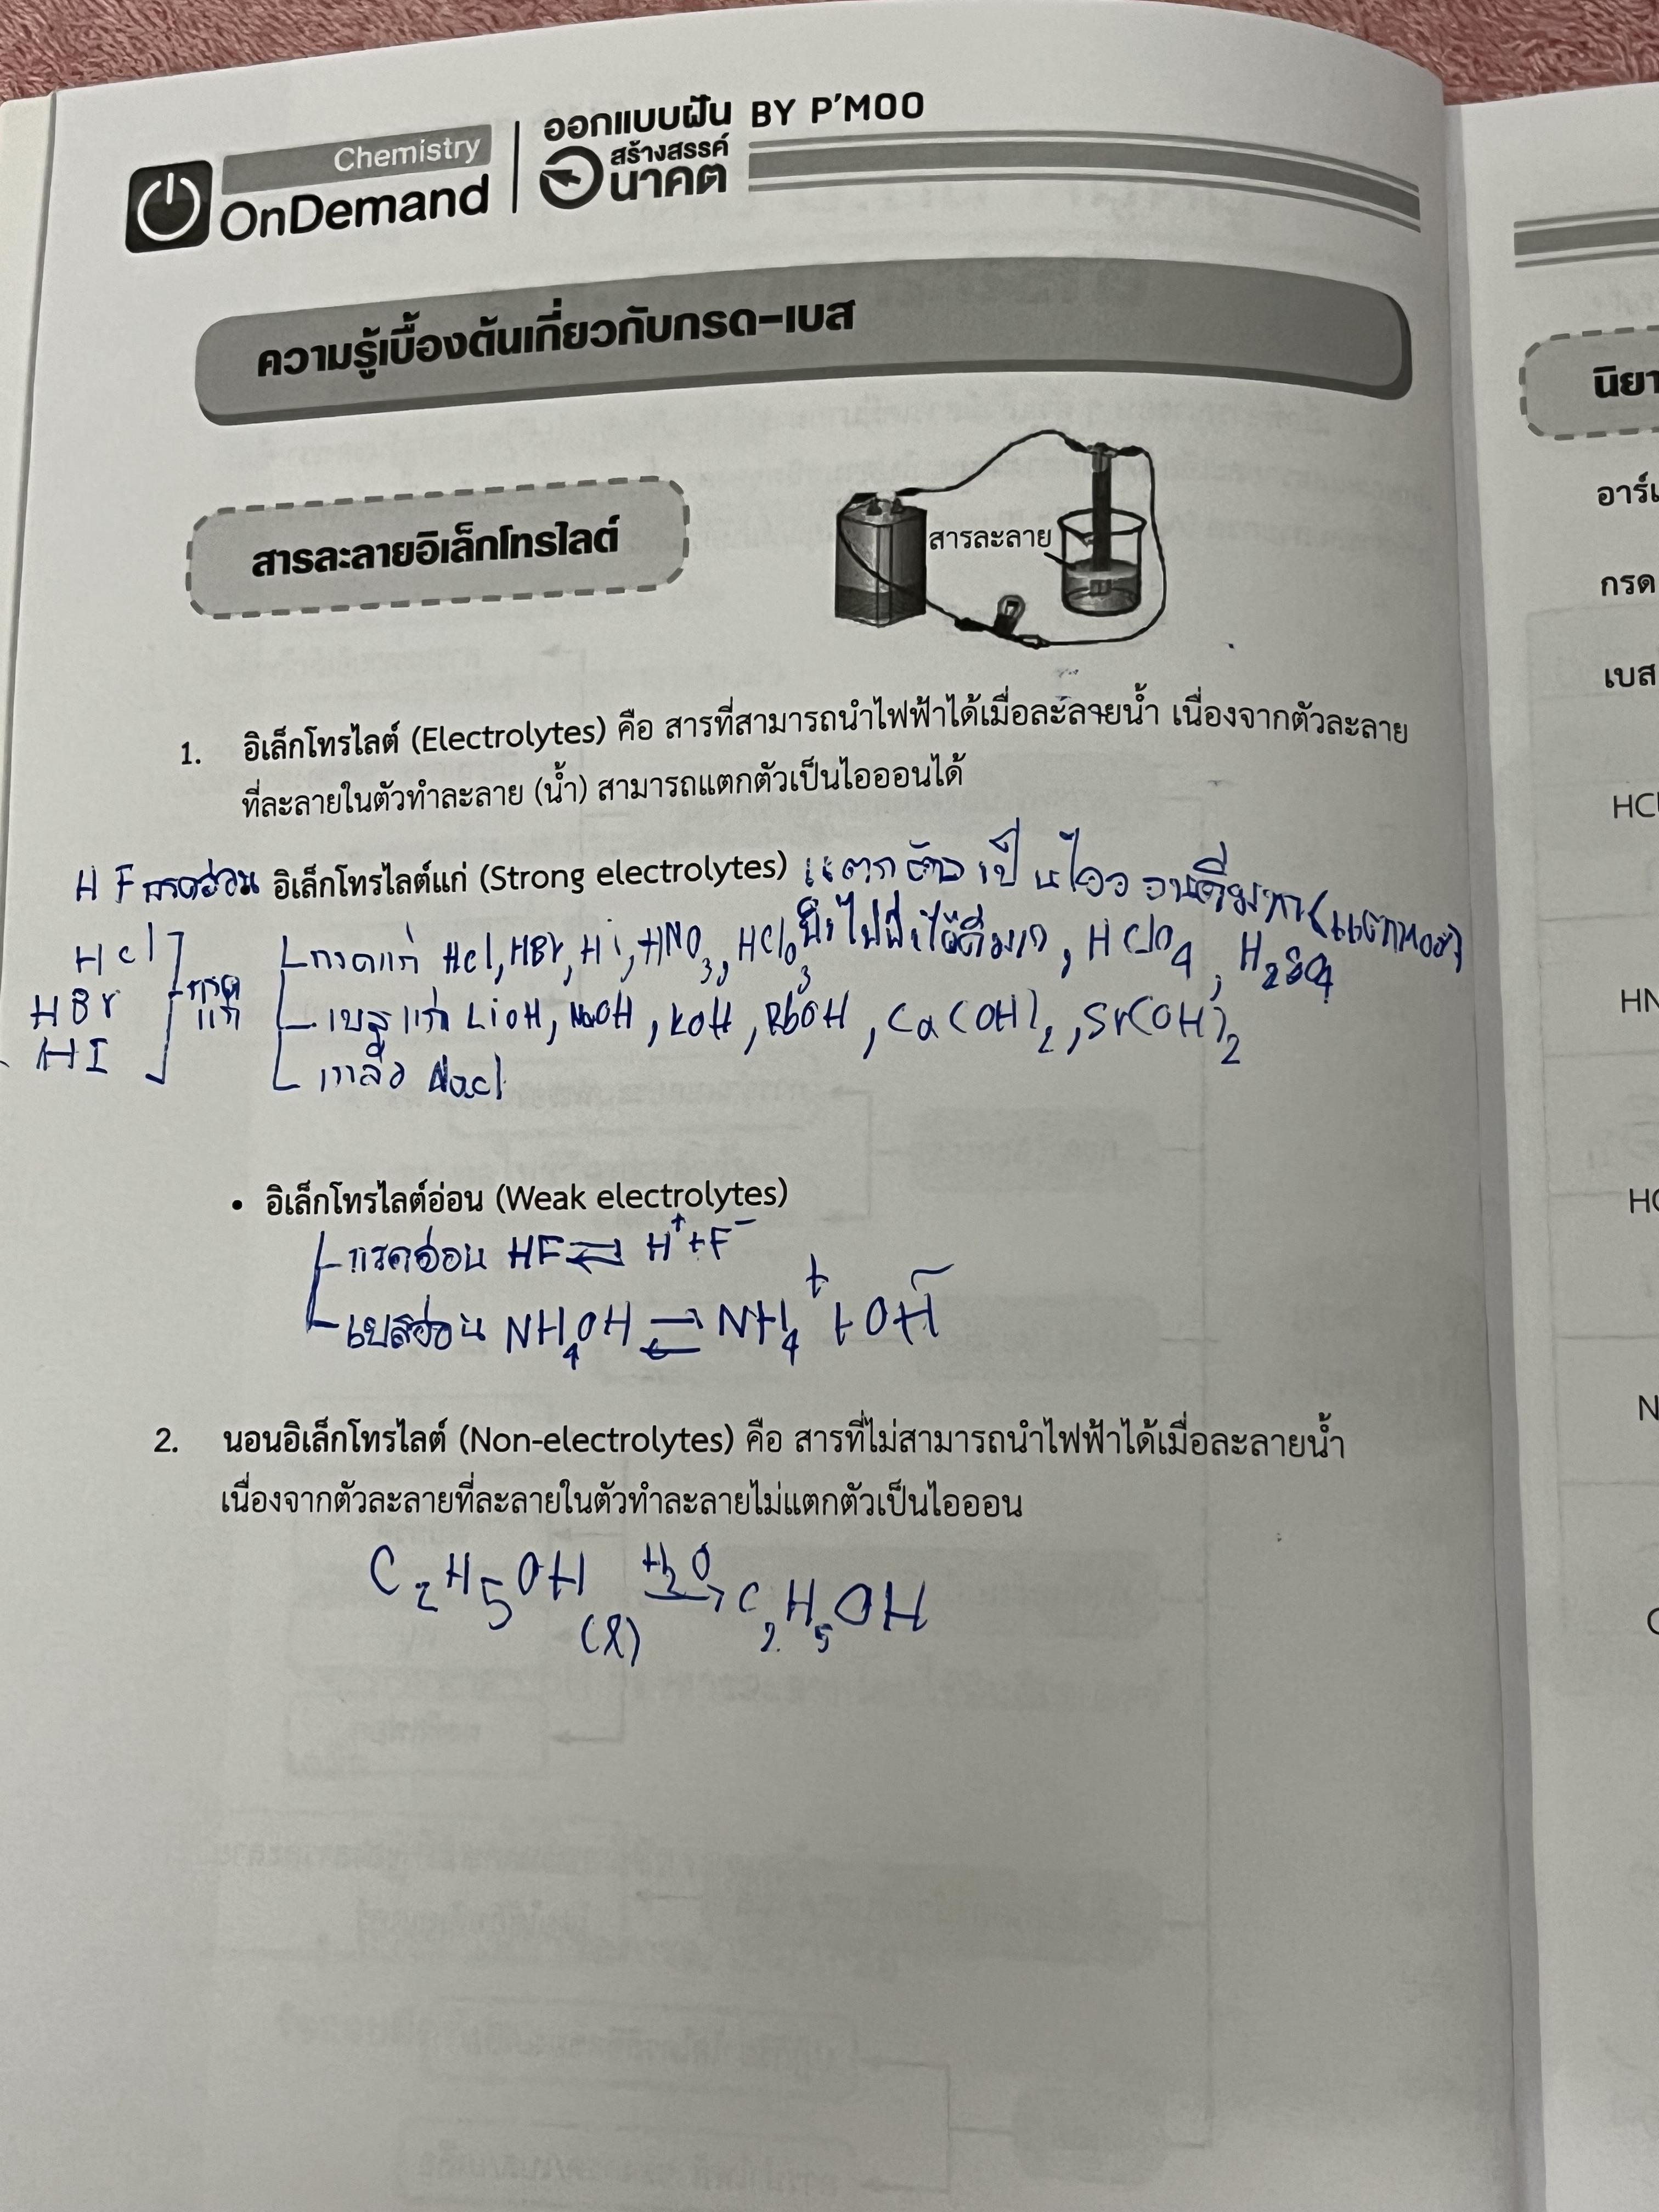 Chemistry
OnDemand
ออกแบบฝัน BY P'MOO
สร้างสรรค์
อนาคต
ความรู้เบื้องต้นเกี่ยวกับกรด-เบส
สารละลายอิเล็กโทรไลต์
สารละลาย
1. อิเล็กโทรไลต์ (Electrolytes) คือ สารที่สามารถนำไฟฟ้าได้เมื่อละลายน้ำ เนื่องจากตัวละลาย
ที่ละลายในตัวทำละลาย (น้ำ) สามารถแตกตัวเป็นไอออนได้
HF กรดอ่อน
อิเล็กโทรไลต์แก่ (Strong electrolytes) แตกตัวเป็นไอออนดีมาก (แตกหมด)
นำไฟฟ้าได้ดีมาก
HCl
HBr
HI
กรด
แก่
กรดแก่ HCl, HBr, Hi, HNO3, HClO3, HClO4, H2SO4
เบสแก่ LiOH, NaOH, KOH, RbOH, Ca(OH)2, Sr(OH)2
เกลือ NaCl
• อิเล็กโทรไลต์อ่อน (Weak electrolytes)
กรดอ่อน HF ⇌ H⁺ + F⁻
เบสอ่อน NH4OH ⇌ NH4⁺ + OH⁻
2. นอนอิเล็กโทรไลต์ (Non-electrolytes) คือ สารที่ไม่สามารถนำไฟฟ้าได้เมื่อละลายน้ำ
เนื่องจากตัวละลายที่ละลายในตัวทำละลายไม่แตกตัวเป็นไอออน
C2H5OH (l) →H2O C2H5OH
นิยา
อาร์เ
กรด
เบส
HCl
HN